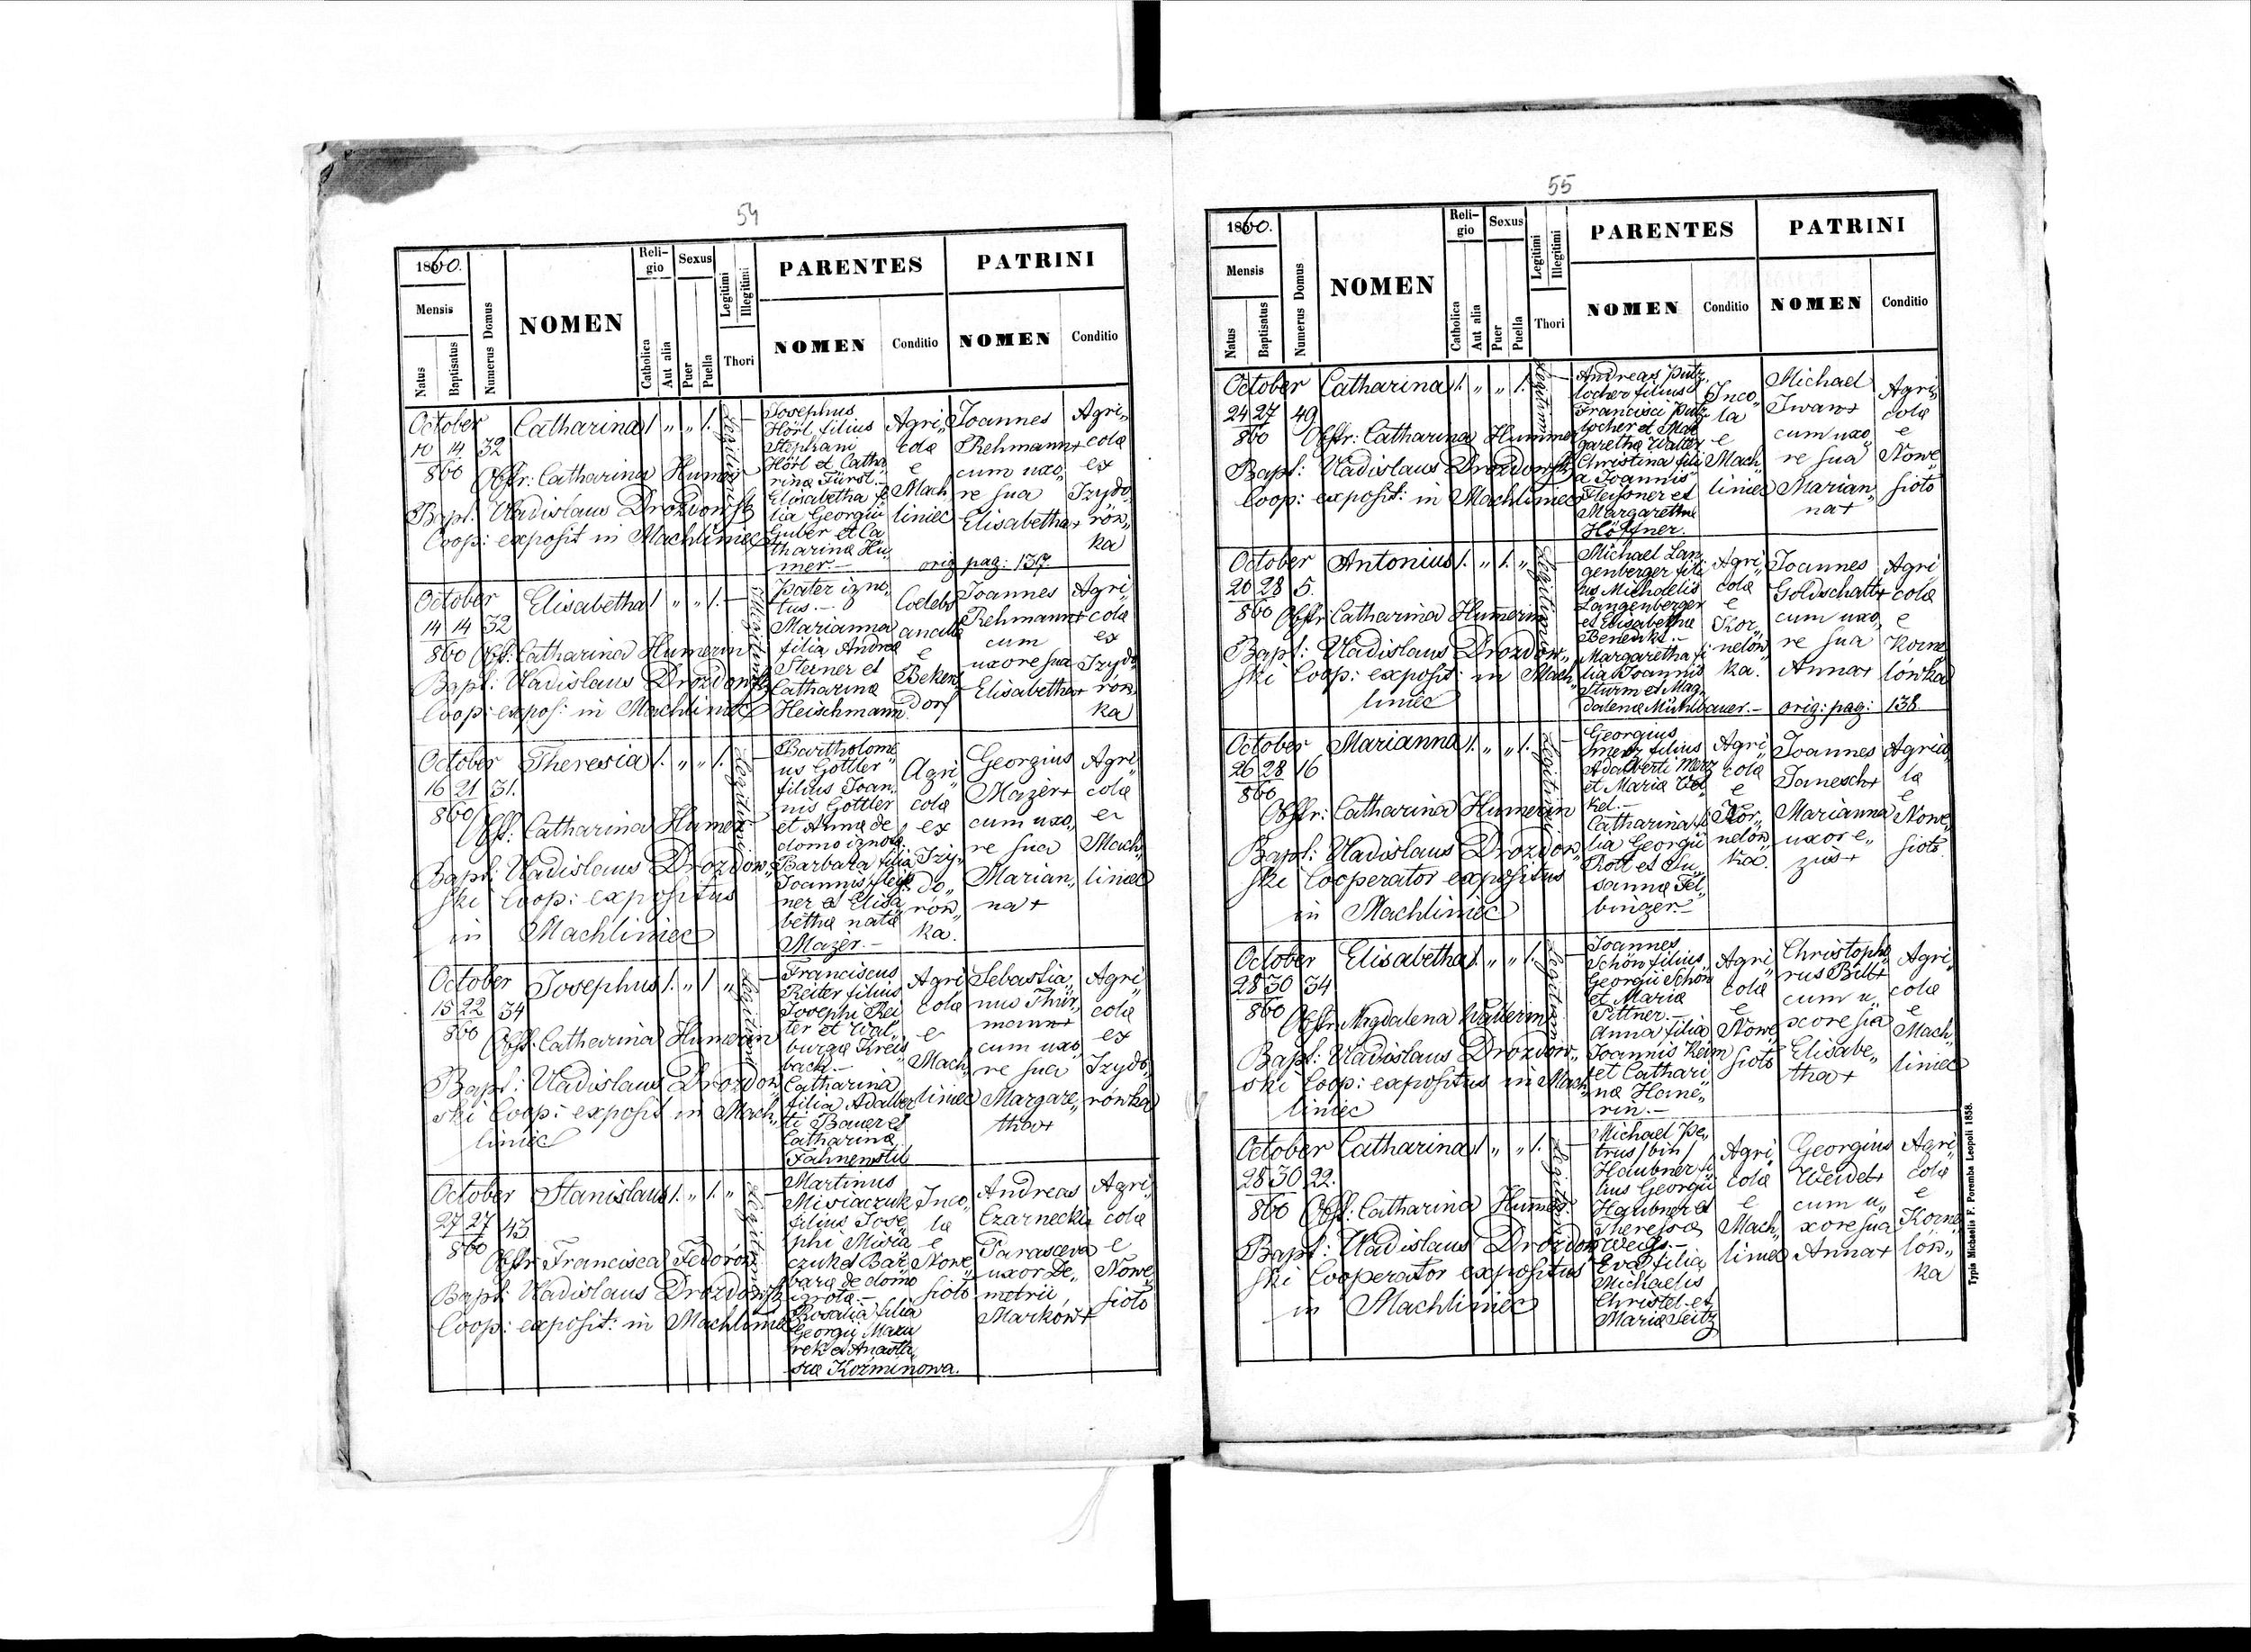 54
1860.
Mensis
Natus
Baptisatus
Numerus Domus
NOMEN
Reli-
gio
Catholica
Aut alia
Sexus
Puer
Puella
Legitimi
Illegitimi
Thori
PARENTES
NOMEN
Conditio
PATRINI
NOMEN
Conditio
October
10 14 32
860
Catharina 1 " " 1.
Obstr: Catharina Humer
Bapt: Vladislaus Drozdowsk
Coop: exposit in Machliniec
Legitimi
Josephus
Hörl filius
Stephani
Hörl et Catha
rina Fürst.-
Elisabetha fi
lia Georgii
Guber et Ca
tharina Hu
mer.-
Agri„
cola
e
Mach„
liniec
Joannes
Rehmann+
cum uxo„
re sua
Elisabetha+
Agri„
cola
ex
Izydo„
rów„
ka
orig pag: 137.
October
14 14 32
860
Elisabetha 1 " " 1.
Obst: Catharina Humerin
Bapt: Vladislaus Drozdowsk
Coop: expos: in Machliniec
Illegitimi
Pater igno„
tus.-
Marianna
filia Andrea
Sterner et
Catharina
Heischmann
Coelebs
ancilla
e
Beken
dorf
Joannes
Rehmann+
cum
uxore sua
Elisabetha+
Agri„
cola
ex
Izydo„
rów„
ka
October
16 21 31.
860
Theresia 1. " " 1.
Obst: Catharina Humer
Bapt: Vladislaus Drozdow„
ski Coop: expositus
in Machliniec
Legitimi
Bartholome
us Gottler
filius Joan„
nis Gottler
et Anna de
domo ignota.
Barbara filia
Joannis Fleiß
ner et Elisa
betha nata
Mazer.-
Agri„
cola
ex
Izy„
do„
rów„
ka.
Georgius
Mazer+
cum uxo„
re sua
Marian„
na+
Agri„
cola
e
Mach„
liniec
October
15 22 34
860
Josephus 1. " 1 "
Obst. Catharina Humerin
Bapt: Vladislaus Drozdow„
ski Coop: exposit in Mach„
liniec
Legitimi
Franciscus
Reiter filius
Josephi Rei
ter et Wal„
burga Kreis
bach.-
Catharina
filia Adalber
ti Bauer et
Catharina
Agri
cola
e
Mach„
liniec
Sebastia„
nus Thür„
mann+
cum uxo„
re sua
Margare„
tha+
Agri„
cola
ex
Izydo„
rówka
October
27 27 43
860
Stanislaus 1. " 1. "
Obstr Francisca Fedorów
Bapt: Vladislaus Drozdowsk
Coop: exposit: in Machliniec
Legitimi
Martinus
Misiaczuk
filius Jose„
phi Misia
czuk et Bar
bara de domo
ignota.-
Rosalia filia
Georgii
rek et Anasta
sia Koźminowa.
Inco„
la
e
Nowe„
sioło
Andreas
Czarnecki+
Parasceva
uxor De„
metrii
Markow+
Agri„
cola
e
Nowe„
sioło
55
1860.
Mensis
Natus
Baptisatus
Numerus Domus
NOMEN
Reli-
gio
Catholica
Aut alia
Sexus
Puer
Puella
Legitimi
Illegitimi
Thori
PARENTES
NOMEN
Conditio
PATRINI
NOMEN
Conditio
October
24 27 49
860
Catharina 1. " " 1.
Obstr: Catharina Hummer
Bapt: Vladislaus Drozdowsk
Coop: exposit: in Machliniec
Legitimi
Andreas Putz„
locher filius
Francisci Putz„
locher et Mar
garetha Walter
Christina fili
a Joannis
Fleißner et
Margaretha
Höffner.
Inco„
la
e
Mach„
liniec
Michael
Iwan+
cum uxo„
re sua
Marian„
na+
Agri„
cola
e
Nowe
sioło
October
20 28 5.
860
Antonius 1. " 1. "
Obstr Catharina Humerin
Bapt: Vladislaus Drozdow„
ski Coop: exposit: in Mach„
liniec
Legitimi
Michael Lan„
genberger fili
us Michaelis
Langenberger
et Elisabetha
Margaretha fi
lia Joannis
Sturm et Mag„
dalena Mühlbauer.-
Agri„
cola
e
Kor„
nelów„
ka.
Joannes
Goldschatt+
cum uxo„
re sua
Anna+
Agri
cola
e
Korne
lówka
orig: pag: 138.
October
26 28 16
860
Marianna 1. " " 1.
Obstr: Catharina Humerin
Bapt: Vladislaus Drozdow„
ski Cooperator expositus
in Machliniec
Legitimi
Georgius
Merz filius
Adalberti Merz
et Maria Vol
kel.-
Catharina fi
lia Georgii
Rott et Su„
sanna Fel„
binger.-
Agri„
cola
e
Kor„
nelów„
ka.
Joannes
Janesch+
Marianna
uxor e„
jus+
Agrico„
la
e
Nowe„
sioło.
October
28 30 34
860
Elisabetha 1. " " 1.
Obstr Magdalena Walterin
Bapt: Vladislaus Drozdow„
ski Coop: expositus in Mach„
liniec
Legitimi
Joannes
Schön filius
Georgii Schön
et Maria
Pittner.-
Anna filia
Joannis Keim
et Cathari
na Hame„
rin.-
Agri„
cola
e
Nowe„
sioło
Christopho„
rus Bill+
cum u„
xore sua
Elisabe„
tha+
Agri„
cola
e
Mach„
liniec
October
28 30 22.
860
Catharina 1 " " 1.
Obst: Catharina Humer.
Bapt: Vladislaus Drozdow
ski Cooperator expositus
in Machliniec
Legitimi
Michael Pe„
trus /bin/
Haubner fi
lius Georgii
Haubner et
Theresia
Weiß.-
Eva filia
Michaelis
Christel et
Maria Seitz
Agri„
cola
e
Mach„
liniec
Georgius
Weidel+
cum u„
xore sua
Anna+
Agri„
cola
e
Korne„
lów„
ka
Typis Michaelis F. Poremba Leopoli 1858.